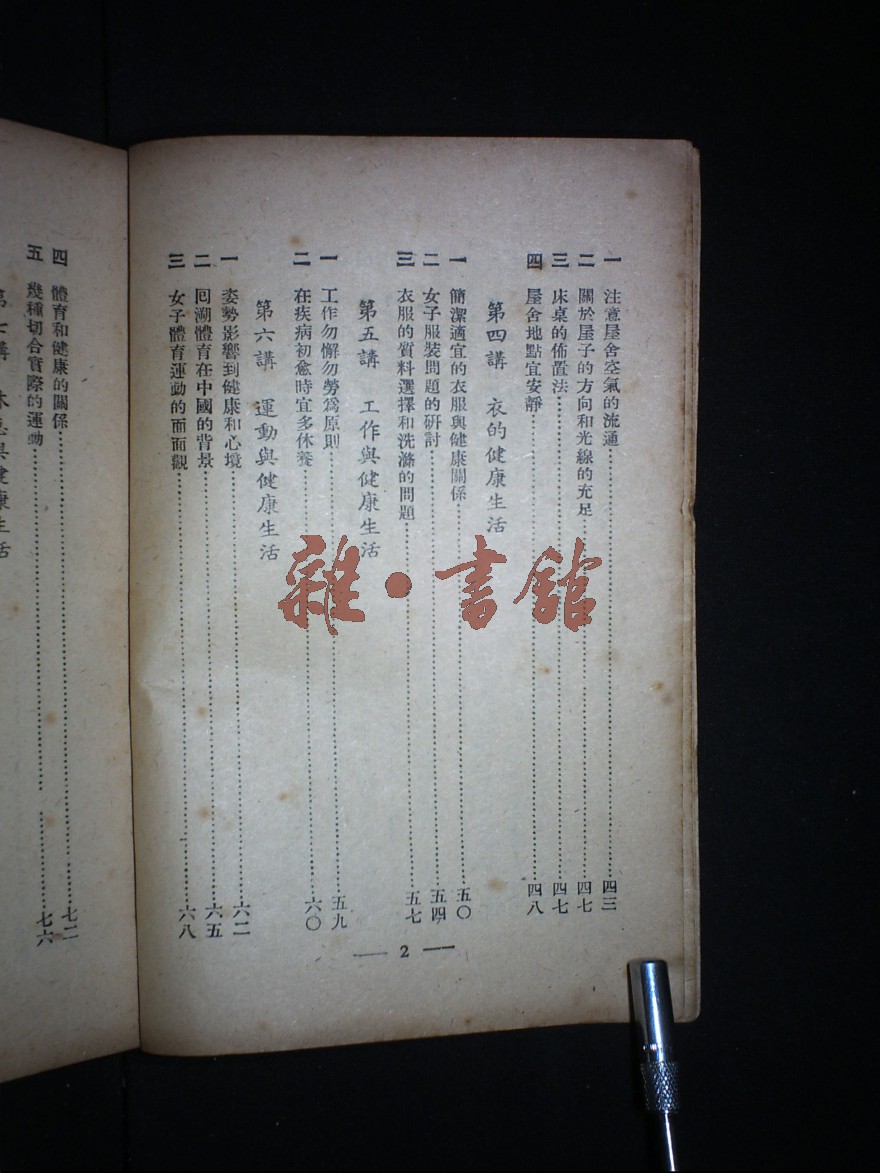 一 注意屋舍空氣的流通……四三
二 關於屋子的方向和光線的充足……四七
三 床桌的佈置法……四七
四 屋舍地點宜安靜……四八
第四講 衣的健康生活
一 簡潔適宜的衣服與健康關係……五〇
二 女子服裝問題的研討……五四
三 衣服的質料選擇和洗滌的問題……五七
第五講 工作與健康生活
一 工作勿懈勿勞爲原則……五九
二 在疾病初愈時宜多休養……六〇
第六講 運動與健康生活
一 姿勢影響到健康和心境……六二
二 囘溯體育在中國的背景……六五
三 女子體育運動的面面觀……六八
— 2 —
四 體育和健康的關係……七二
五 幾種切合實際的運動……七六
第七講 休息與健康生活
雜·書館